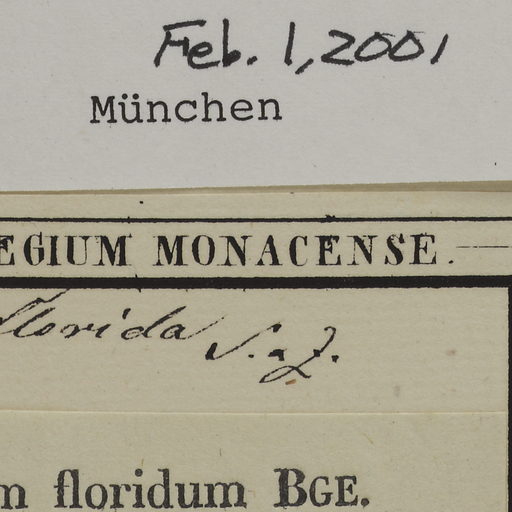 Feb. 1, 2001
München
EGIUM MONACENSE.
florida S. a Z.
m floridum BGE.